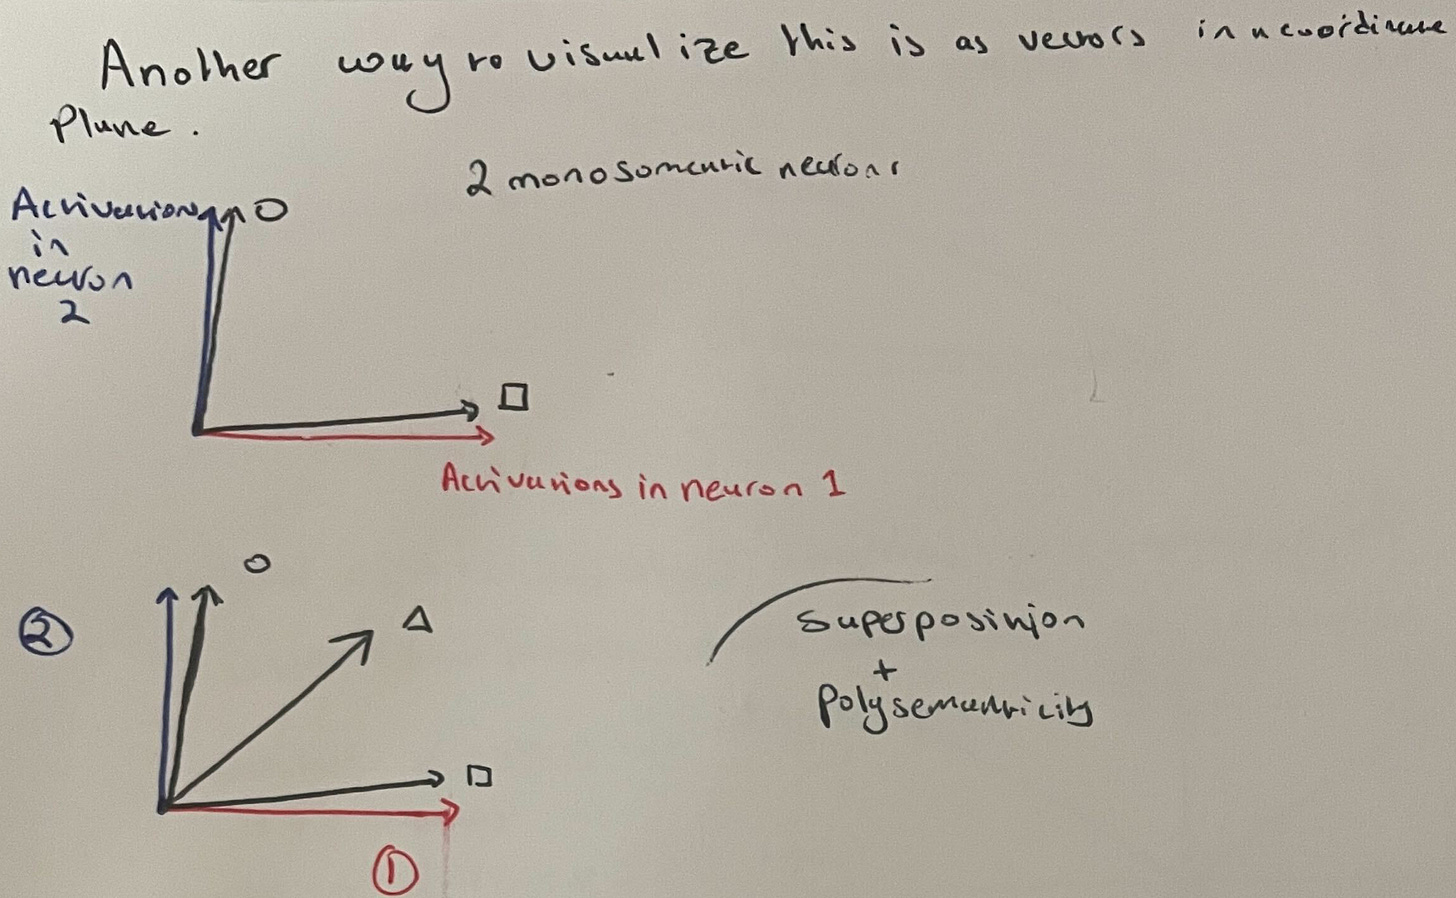 Another way to visualize this is as vectors in a coordinate
Plane.
2 monosomantic neurons
Activations
in
neuron
2
Activations in neuron 1
2
superposition
+
polysemantricity
1